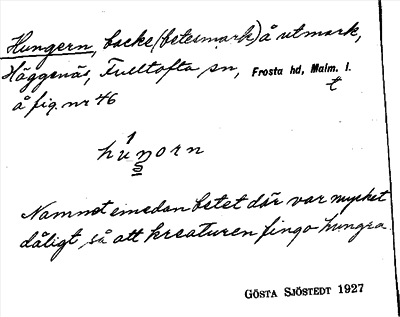 Hungern, backe (betesmark) å utmark,
Häggenäs, Fulltofta sn, Frosta hd, Malm. l.
å fig. nr 46 t
huŋorn
Namnet emedan betet där var mycket
dåligt, så att kreaturen fingo hungra.
GÖSTA SJÖSTEDT 1927